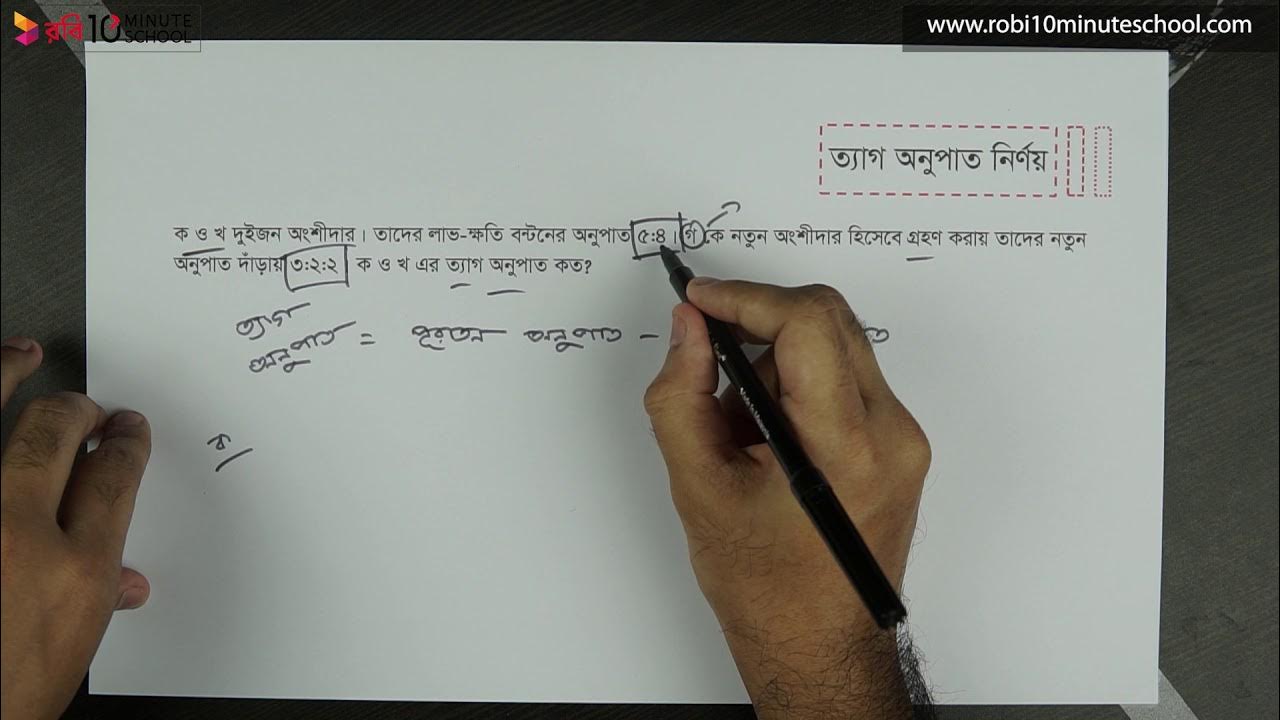 রবি 10 MINUTE SCHOOL
www.robi10minuteschool.com
ত্যাগ অনুপাত নির্ণয়
ক ও খ দুইজন অংশীদার। তাদের লাভ-ক্ষতি বন্টনের অনুপাত ৫:৪। গ কে নতুন অংশীদার হিসেবে গ্রহণ করায় তাদের নতুন
অনুপাত দাঁড়ায় ৩:২:২ ক ও খ এর ত্যাগ অনুপাত কত?
ত্যাগ
অনুপাত = পূরতন অনুপাত -
ক